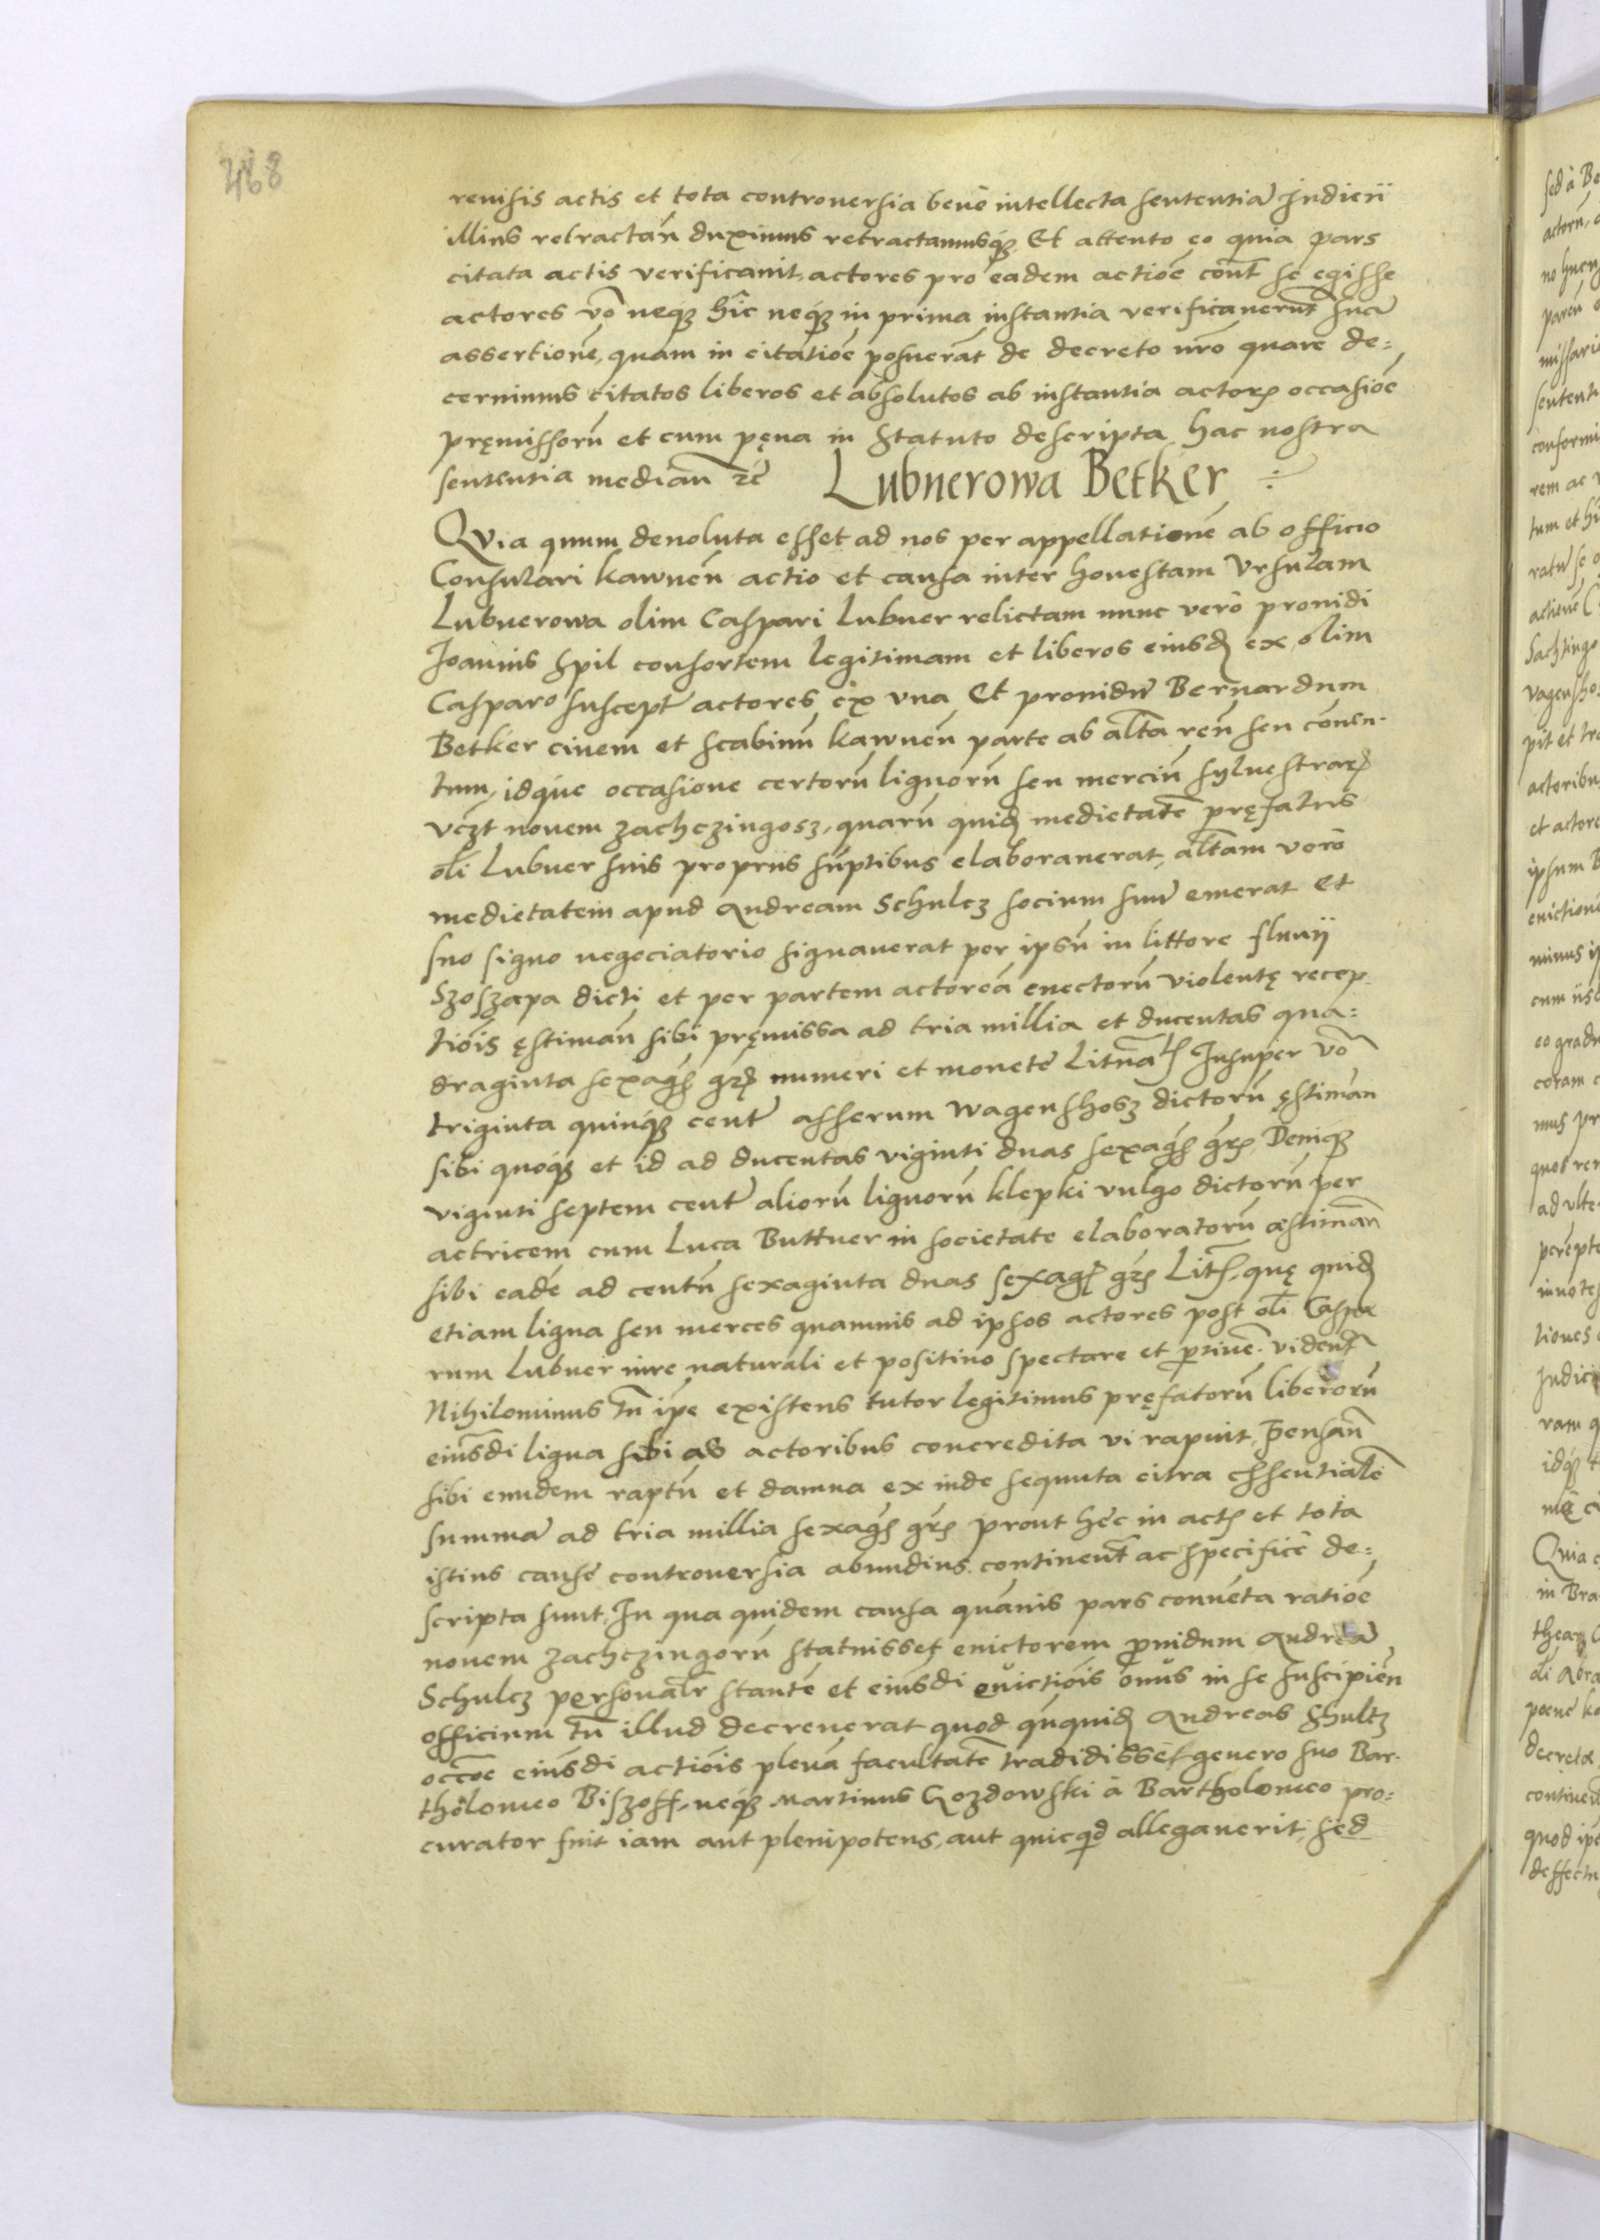 468
reuisis actis et tota controuersia bene intellecta sententiā Judicii
illius retractan̄ duximus retractamusq́ꝫ Et attento eo quia pars
citata actis verificauit, actores pro eadem actiōe cont̄ se egisse
actores v̄o neq́ꝫ hîc neq́ꝫ in prima instantia verificauerūt suā
assertionē, quam in citatiōe posuerāt de decreto nr̄o quare de=
cernimus citatos liberos et absolutos ab instantia actoꝝ occasiōe
pręmissorū et cum pęna in Statuto descripta, hac nostra
sententia median̄ ꝛc̄ Lubnerowa Betker
Quia quum deuoluta esset ad nos per appellationē ab officio
Consulari kawnen̄ actio et causa inter honestam Vrsulam
Lubnerowa olim Caspari Lubner relictam nunc verò prouidi
Joannis Spil consortem legitimam et liberos eiusꝺ ex olim
Casparo suscept̄ actores ex vna Et prouidū Bernardum
Betker ciuem et scabinū kawnen̄ parte ab alt̄a reū seu conuen-
tum, idq́ue occasione certorū lignorū seu merciū syluestraꝝ
vꝫt nouem zachczingosz, quarū quiꝺ medietatē pręfatus
oli Lubner suis propriis sūptibus elaborauerat, alt̄am verò
medietatem apud Andream Schulcz socium suū emerat et
suo signo negociatorio signauerat per ipsū in littore fluuij
Szoszapa dicti et per partem actoreā euectorū violentę recep-
tiōis ęstiman̄ sibi pręmissa ad tria millia et ducentas qua=
draginta sexagꝭ grꝭ numeri et monete Lituaꝭ Insuper v̄o
triginta quinq́ꝫ cent̄ asserum wagenshosz dictorū ęstiman̄
sibi quoq́ꝫ et id ad ducentas viginti duas sexagꝭ grꝭ, Deniq́ꝫ
viginti septem cent̄ aliorū lignorū klepki vulgo dictorū per
actricem cum Luca Buttner in societate elaboratorū æstiman̄
sibi eadē ad centū sexaginta duas sexagꝭ grꝭ Litꝭ, quę quiꝺ
etiam ligna seu merces quamuis ad ipsos actores post oli Caspa
rum Lubner iure naturali et positiuo spectare et ꝑtine. vident̄
Nihilominus tn̄ ipē existens tutor legitimus pręfatorū liberorū
eiusdi ligna sibi ab actoribus concredita vi rapuit, Pensan̄
sibi eundem raptū et damna ex inde sequuta citra essentialē
summā ad tria millia sexagꝭ grꝭ prout hęc in actꝭ et tota
istius causę controuersia abundius continent̄ ac specificè de=
scripta sunt, In qua quidem causa quāuis pars conuēta ratiōe
nouem zachczingorū statuisset euictorem ꝓuidum Andreā
Schulcz personalr̄ stantē et eiusdi euictiōis onus in se suscipien̄
officium tn̄ illud decreuerat quod quāquiꝺ Andreas Shultz
occoē eiusdi actiōis plenā facultatē tradidisset genero suo Bar-
tholomeo Biszoff, neq́ꝫ Martinus Gozdowski à Bartholomeo pro=
curator fuit iam aut plenipotens, aut quicqꝺ allegauerit, sed